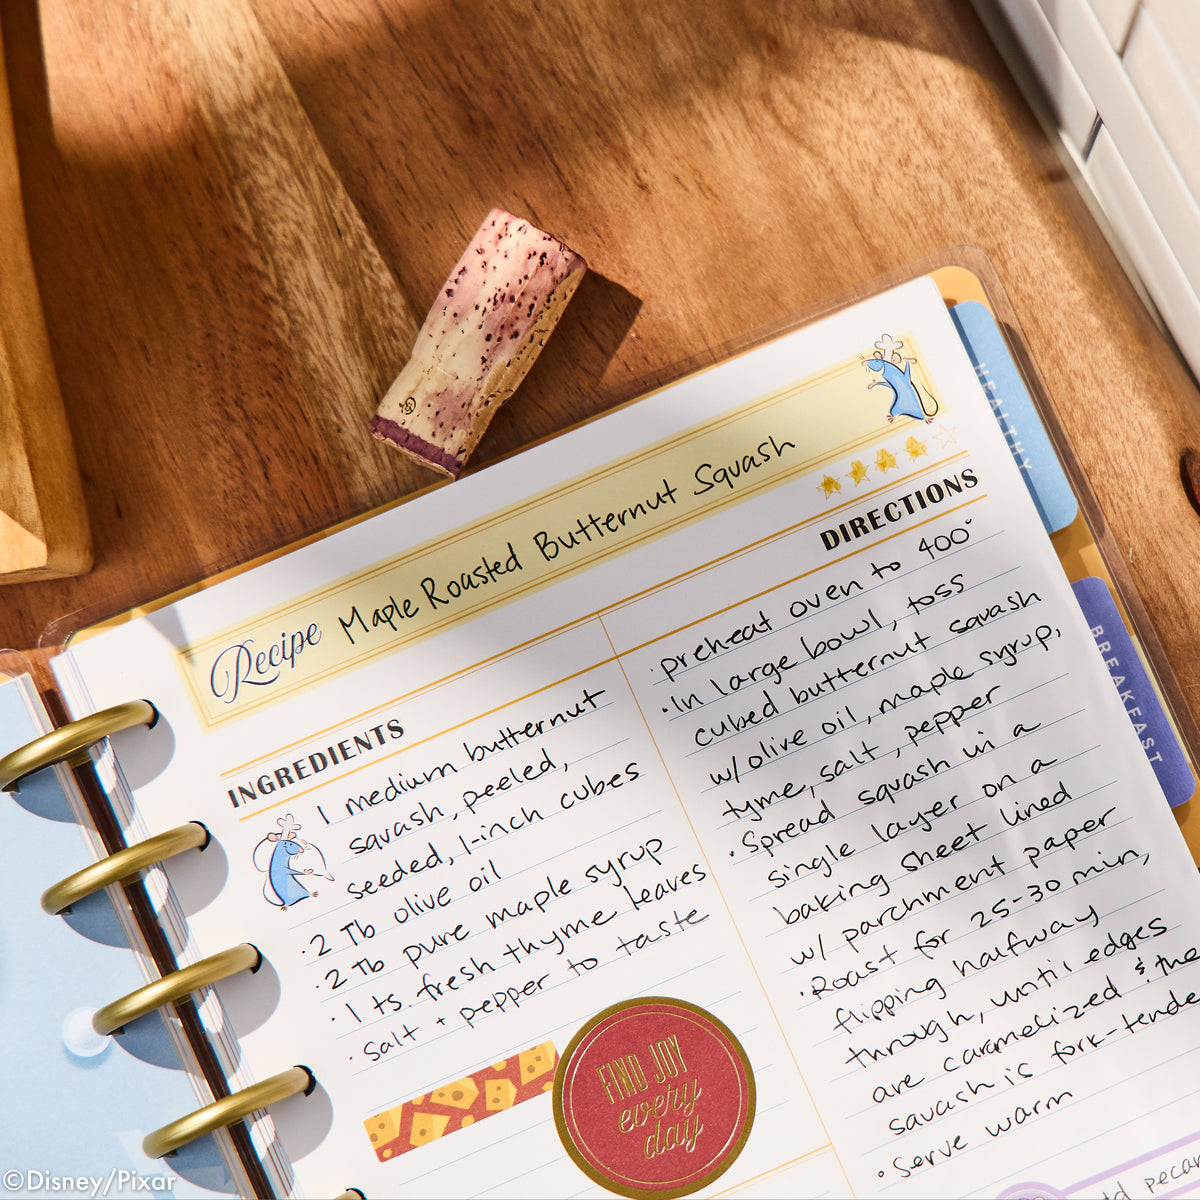 HEALTHY
BREAKFAST
Recipe Maple Roasted Butternut Squash
INGREDIENTS
1 medium butternut
squash, peeled,
seeded, 1-inch cubes
· 2 Tb olive oil
· 2 Tb pure maple syrup
· 1 ts. fresh thyme leaves
· salt + pepper to taste
FIND JOY
every
day
DIRECTIONS
· preheat oven to 400°
· In large bowl, toss
cubed butternut squash
w/olive oil, maple syrup,
tyme, salt, pepper
· Spread squash in a
single layer on a
baking sheet lined
w/ parchment paper
· Roast for 25-30 min,
flipping halfway
through, until edges
are caramelized & the
squash is fork-tende
· Serve warm
©Disney/Pixar